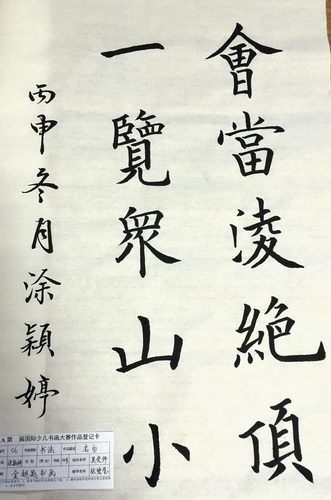 會當淩絕頂
一覽眾山小
丙申冬月涂穎婷
展国际少儿书画大赛作品登记卡
书法
名句
书画